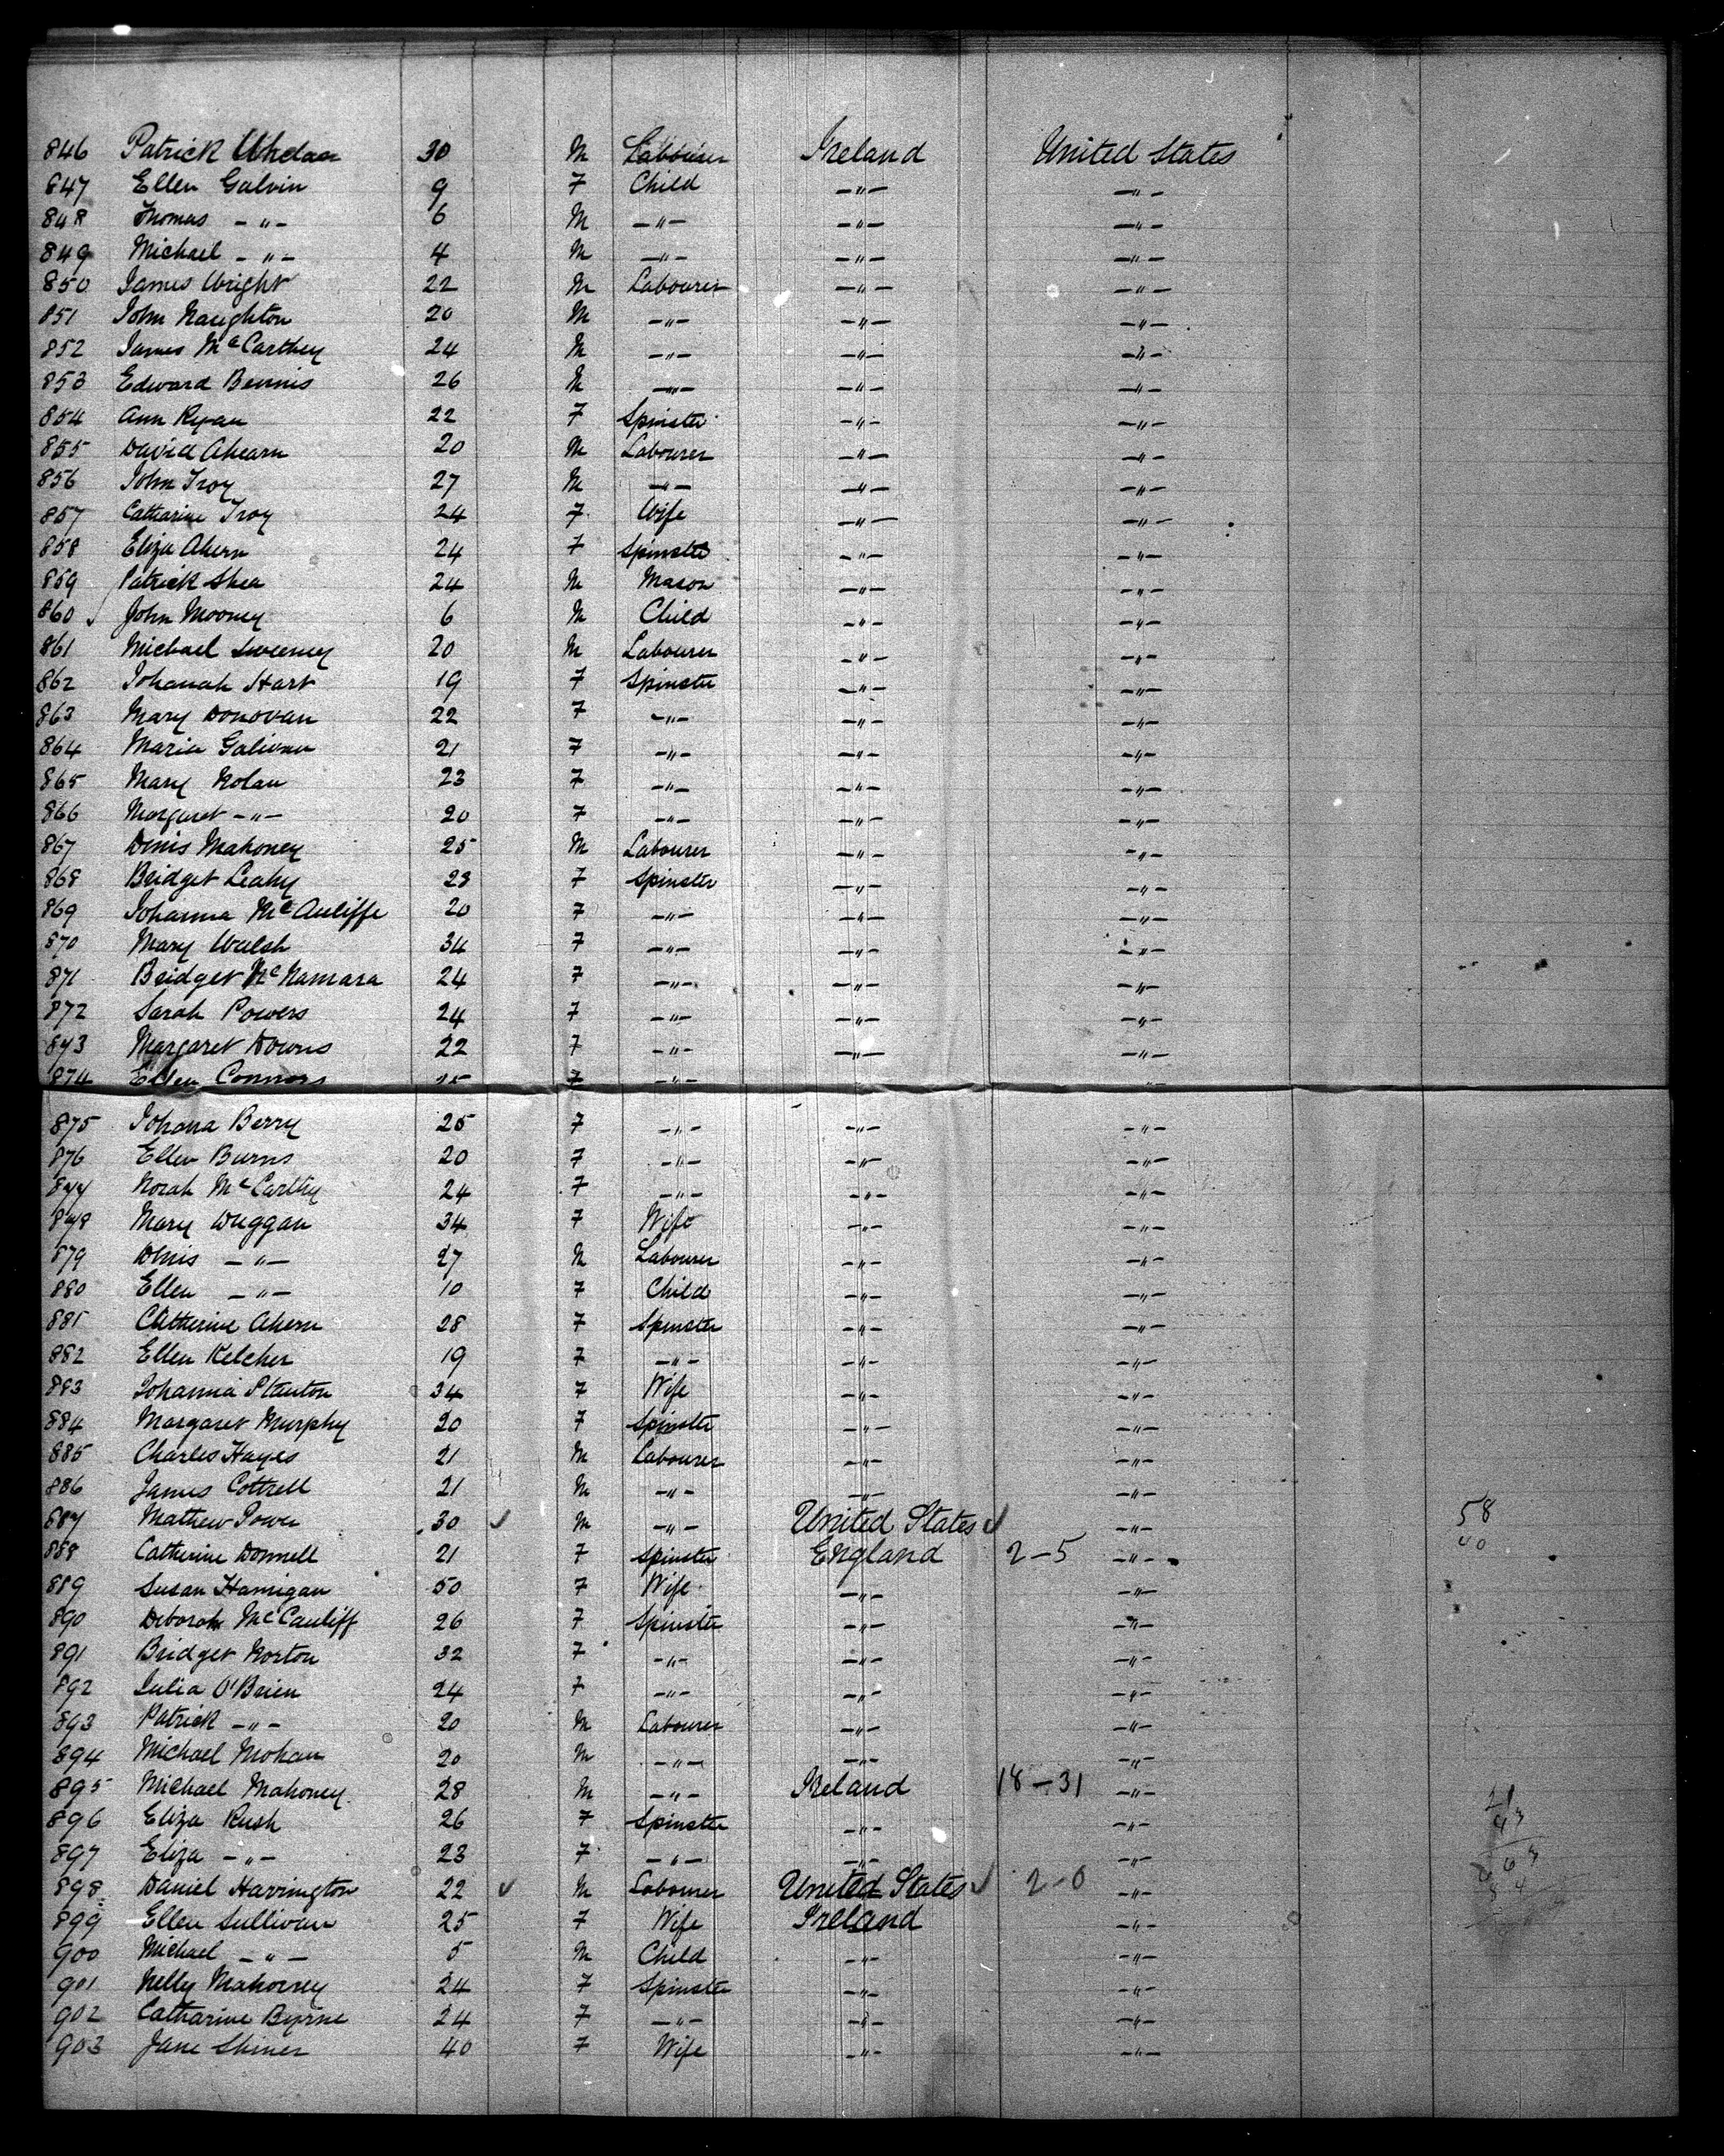 846 Patrick Whelan 30 M Labourer Ireland United States
847 Ellen Galvin 9 F Child -"- -"-
848 Thomas -"- 6 M -"- -"- -"-
849 Michael -"- 4 M -"- -"- -"-
850 James Wright 22 M Labourer -"- -"-
851 John Naughton 20 M -"- -"- -"-
852 James McCarthey 24 M -"- -"- -"-
853 Edward Bennis 26 M -"- -"- -"-
854 Ann Ryan 22 F Spinster -"- -"-
855 David Ahearn 20 M Labourer -"- -"-
856 John Troy 27 M -"- -"- -"-
857 Catharine Troy 24 F Wife -"- -"-
858 Eliza Ahern 24 F Spinster -"- -"-
859 Patrick Shea 24 M Mason -"- -"-
860 John Mooney 6 M Child -"- -"-
861 Michael Sweeney 20 M Labourer -"- -"-
862 Johanah Hart 19 F Spinster -"- -"-
863 Mary Donovan 22 F -"- -"- -"-
864 Maria Galivan 21 F -"- -"- -"-
865 Mary Nolan 23 F -"- -"- -"-
866 Margaret -"- 20 F -"- -"- -"-
867 Denis Mahoney 25 M Labourer -"- -"-
868 Bridget Leahy 23 F Spinster -"- -"-
869 Johanna McAuliffe 20 F -"- -"- -"-
870 Mary Walsh 34 F -"- -"- -"-
871 Bridget McNamara 24 F -"- -"- -"-
872 Sarah Powers 24 F -"- -"- -"-
873 Margaret Downs 22 F -"- -"- -"-
874 Ellen Connors F -"- -"-
875 Johana Berry 25 F -"- -"- -"-
876 Ellen Burns 20 F -"- -"- -"-
877 Norah McCarthy 24 F -"- -"- -"-
878 Mary Duggan 34 F Wife -"- -"-
879 Denis -"- 27 M Labourer -"- -"-
880 Ellen -"- 10 F Child -"- -"-
881 Catherine Ahern 28 F Spinster -"- -"-
882 Ellen Kelcher 19 F -"- -"- -"-
883 Johanna Stanton 34 F Wife -"- -"-
884 Margaret Murphy 20 F Spinster -"- -"-
885 Charles Hayes 21 M Labourer -"- -"-
886 James Cottrell 21 M -"- -"- -"-
887 Mathew Power 30 ✓ M -"- United States ✓ -"- 58
888 Catherine Donnell 21 F Spinster England 2-5 -"- 40
889 Susan Hannigan 50 F Wife -"- -"-
890 Deborah McCauliff 26 F Spinster -"- -"-
891 Bridget Norton 32 F -"- -"- -"-
892 Julia O'Brien 24 F -"- -"- -"-
893 Patrick -"- 20 M Labourer -"- -"-
894 Michael Mohan 20 M -"- -"- -"-
895 Michael Mahoney 28 M -"- Ireland 18-31 -"-
896 Eliza Rush 26 F Spinster -"- -"-
897 Eliza -"- 23 F -"- -"- -"-
898 Daniel Harrington 22 ✓ M Labourer United States ✓ 2-0 -"-
899 Ellen Sullivan 25 F Wife Ireland -"-
900 Michael -"- 5 M Child -"- -"-
901 Nelly Mahoney 24 F Spinster -"- -"-
902 Catharine Byrne 24 F -"- -"- -"-
903 Jane Shiner 40 F Wife -"- -"-